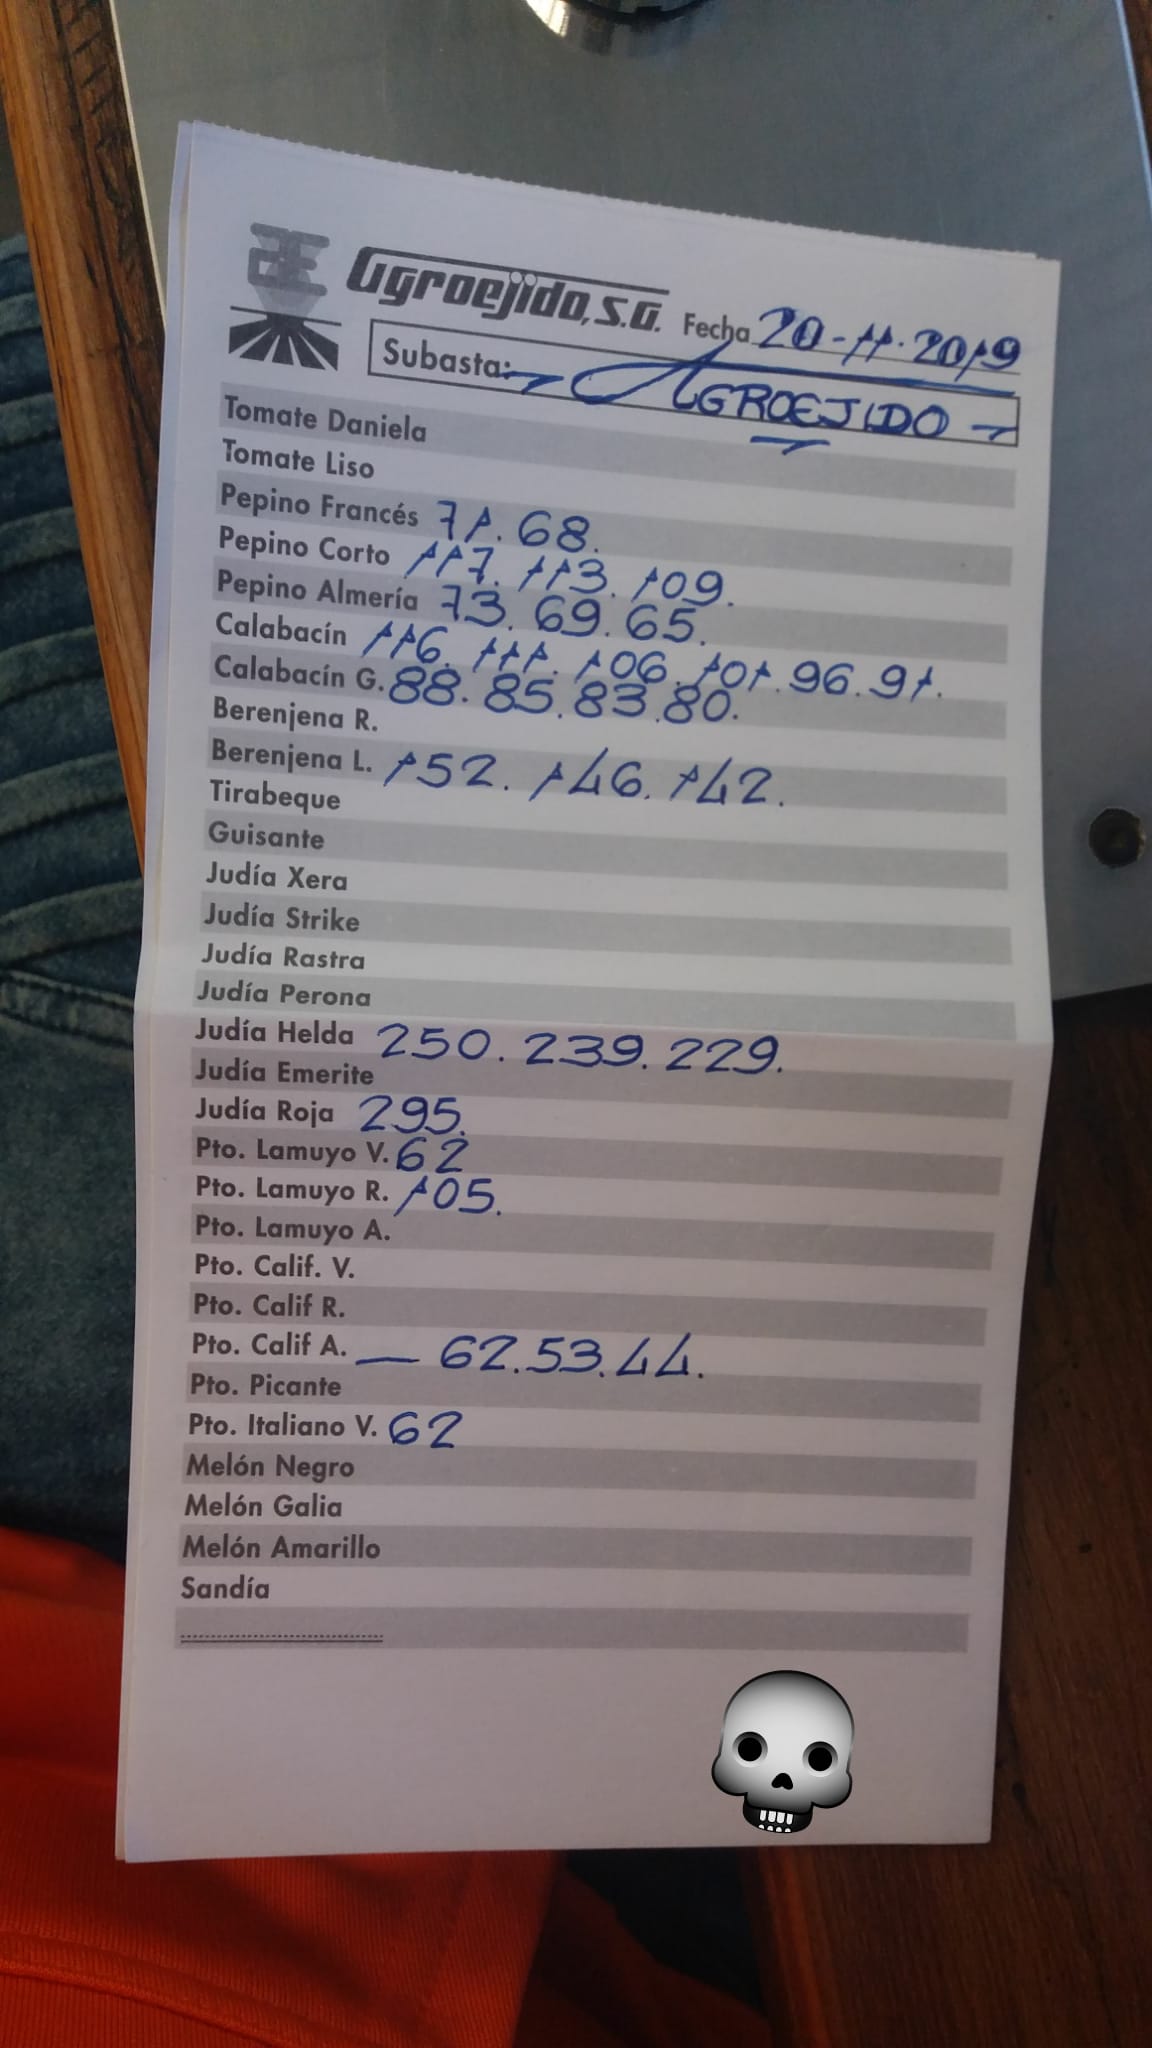 Agroejido, S.A. Fecha 20-11-2019
Subasta: AGROEJIDO
Tomate Daniela
Tomate Liso
Pepino Francés 71. 68.
Pepino Corto 117. 113. 109.
Pepino Almería 73. 69. 65.
Calabacín 116. 111. 106. 101. 96. 91.
Calabacín G. 88. 85. 83. 80.
Berenjena R.
Berenjena L. 152. 146. 142.
Tirabeque
Guisante
Judía Xera
Judía Strike
Judía Rastra
Judía Perona
Judía Helda 250. 239. 229.
Judía Emerite
Judía Roja 295.
Pto. Lamuyo V. 62
Pto. Lamuyo R. 105.
Pto. Lamuyo A.
Pto. Calif. V.
Pto. Calif R.
Pto. Calif A. — 62. 53. 44.
Pto. Picante
Pto. Italiano V. 62
Melón Negro
Melón Galia
Melón Amarillo
Sandía